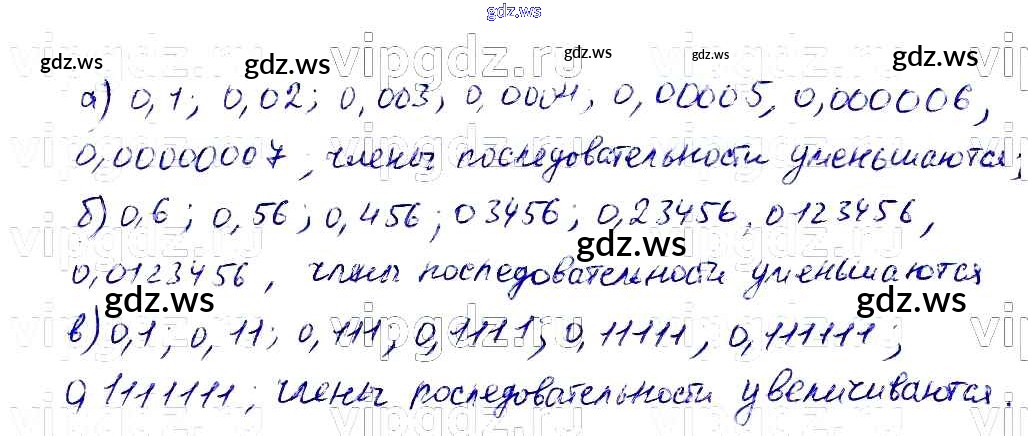 gdz.ws
vipgdz.ru vipgdz.ru vipgdz.ru vipgdz.ru
gdz.ws gdz.ws gdz.ws gdz.ws gdz.ws
а) 0,1; 0,02; 0,003, 0,0004, 0,00005, 0,000006,
0,00000007, члены последовательности уменьшаются;
б) 0,6; 0,56; 0,456; 03456; 0,23456, 0123456,
gdz.ws
0,0123456, члены последовательности уменьшаются
gdz.ws gdz.ws gdz.ws
в) 0,1; 0,11; 0,111, 0,1111; 0,11111, 0,111111;
0,1111111; члены последовательности увеличиваются.